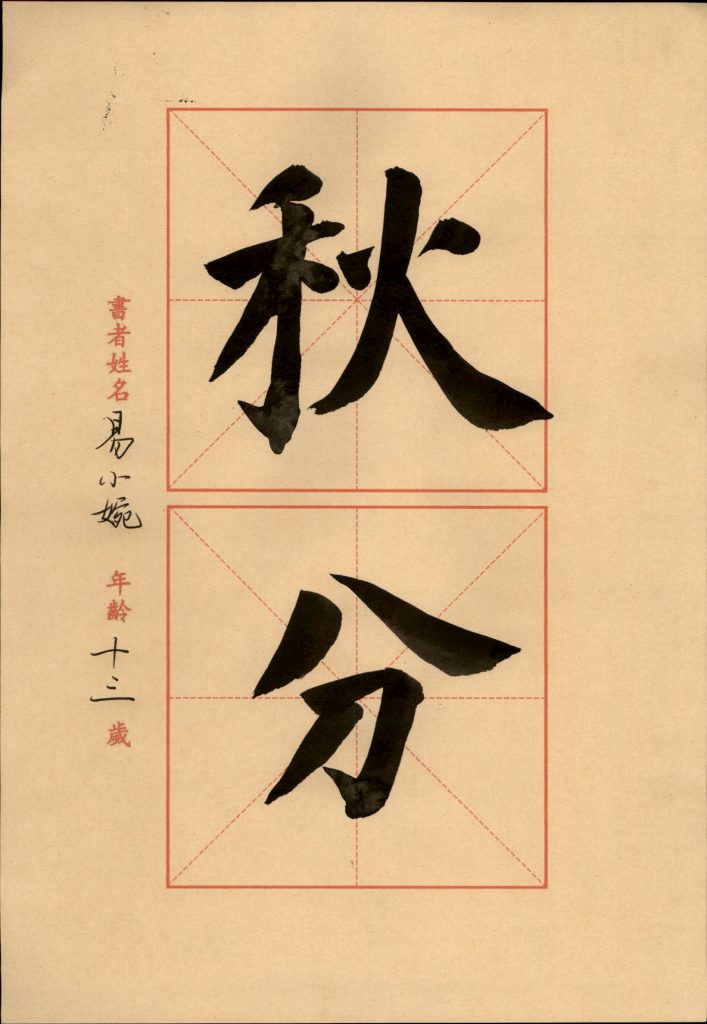 秋分
書者姓名 易小婉 年齡 十三 歲